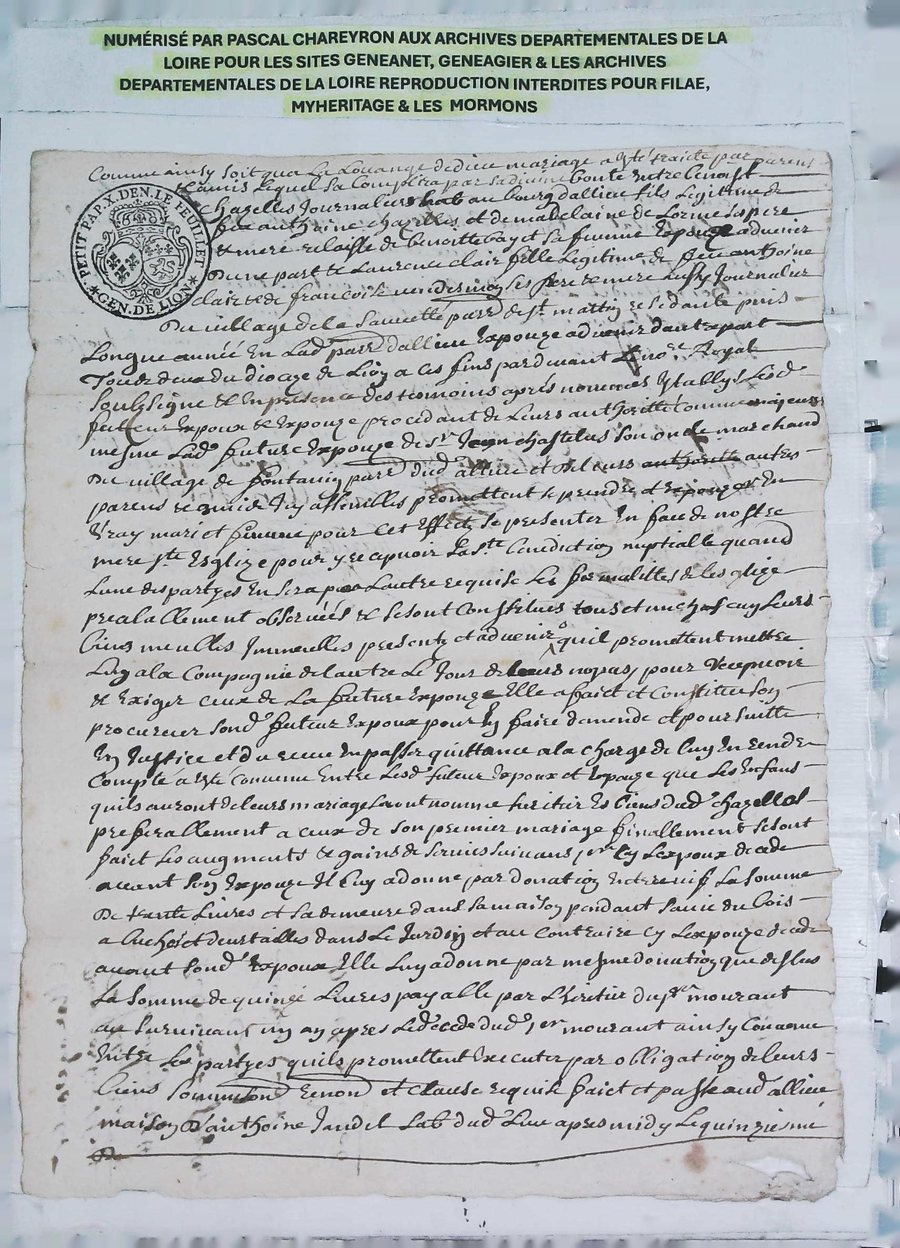 NUMÉRISÉ PAR PASCAL CHAREYRON AUX ARCHIVES DEPARTEMENTALES DE LA
LOIRE POUR LES SITES GENEANET, GENEAGIER & LES ARCHIVES
DEPARTEMENTALES DE LA LOIRE REPRODUCTION INTERDITES POUR FILAE,
MYHERITAGE & LES MORMONS
PETIT PAP. X. DEN. LE FEUILLET
* GEN. DE LION *
Comme ainsy soit qua La Louange de dieu mariage a esté traicté par parens
& amis lequel sa Complira par sa divine bonté entre benoist
Chazelles Journalier hab au bourg dallieu fils Legitime de
feu anthoine chazelles et de madelaine de Lorme ses pere
& mere relaissé de benoitte bay et sa feuvme Expouze advenir
Dune part & Laurence clair fille Legitime de feu anthoine
clair & de francoise vendesmoy ses pere & mere Journalier
Du village de la Sauvette parr de st mattin residante puis
Longue année En Lad parr dallieu Expouze advenir dautre part
Tous deux du dioceze de Lion a ces fins pardevant Le nore Royal
Soulsigné & En presence des tesmoins apres nommes Establys Lesd
futeur Expoux & Expouze procédant de Leurs authorité Comme majeurs
mesme Lade future Expouze de sr Jean chastelus son oncle marchand
Du village de fontanin parr dud allieu et de Leurs authorité autres
parens & amis Icy assemblés promettent se prendre et Expouzer En
Vray mari et femme pour Cet Effect se presenter En face de nostre
mere ste Esglize pour y recepvoir La ste benediction nuptialle quand
Lune des partyes En sera par Lautre requise Les formalittes de Lesglize
prealablement observées & se sont Constitues tous et un chascuns Leurs
biens meubles Immeubles presents et advenir quil promettent mettre
Luy a la Compagnie de lautre Le Jour de leurs nopces, pour recepvoir
& Exiger ceux de La future Expouze Elle a faict et Constitué son
procureur sond futeur Expoux pour En faire demende et poursuitte
En Justice et du receu En passer quittance a la charge de Luy En rendre
Compte a esté Convenu Entre Lesd futeur Expoux et Expouze que Les Enfans
quils auront de leurs mariage seront nommé heritier Es biens dud chazelles
preferallement a ceux de son premier mariage finallement se sont
faict Les augments & gains de survies suivans, scy Lexpoux decede
avant son Expouze Il Luy a donné par donation Entre vif La Somme
De trente Livres et sa demeure dans sa maison pendant sa vie du bois
a Luchos et deux tailles dans Le Jardin et au Contraire cy Lexpouze decede
avant sond Expoux Elle Luy a donné par mesme donation que dessus
La Somme de quinze Livres payable par Lheritier du pr mourant
au survivant un an apres Le deceds dud per mourant ainsy Convenu
Entre Les partyes quils promettent Executer par obligation de leurs
biens soumi renon et clause requise faict et passé aud allieu
maison danthoine Jandel hab dud Lieu apres midy Le quinziesme
De